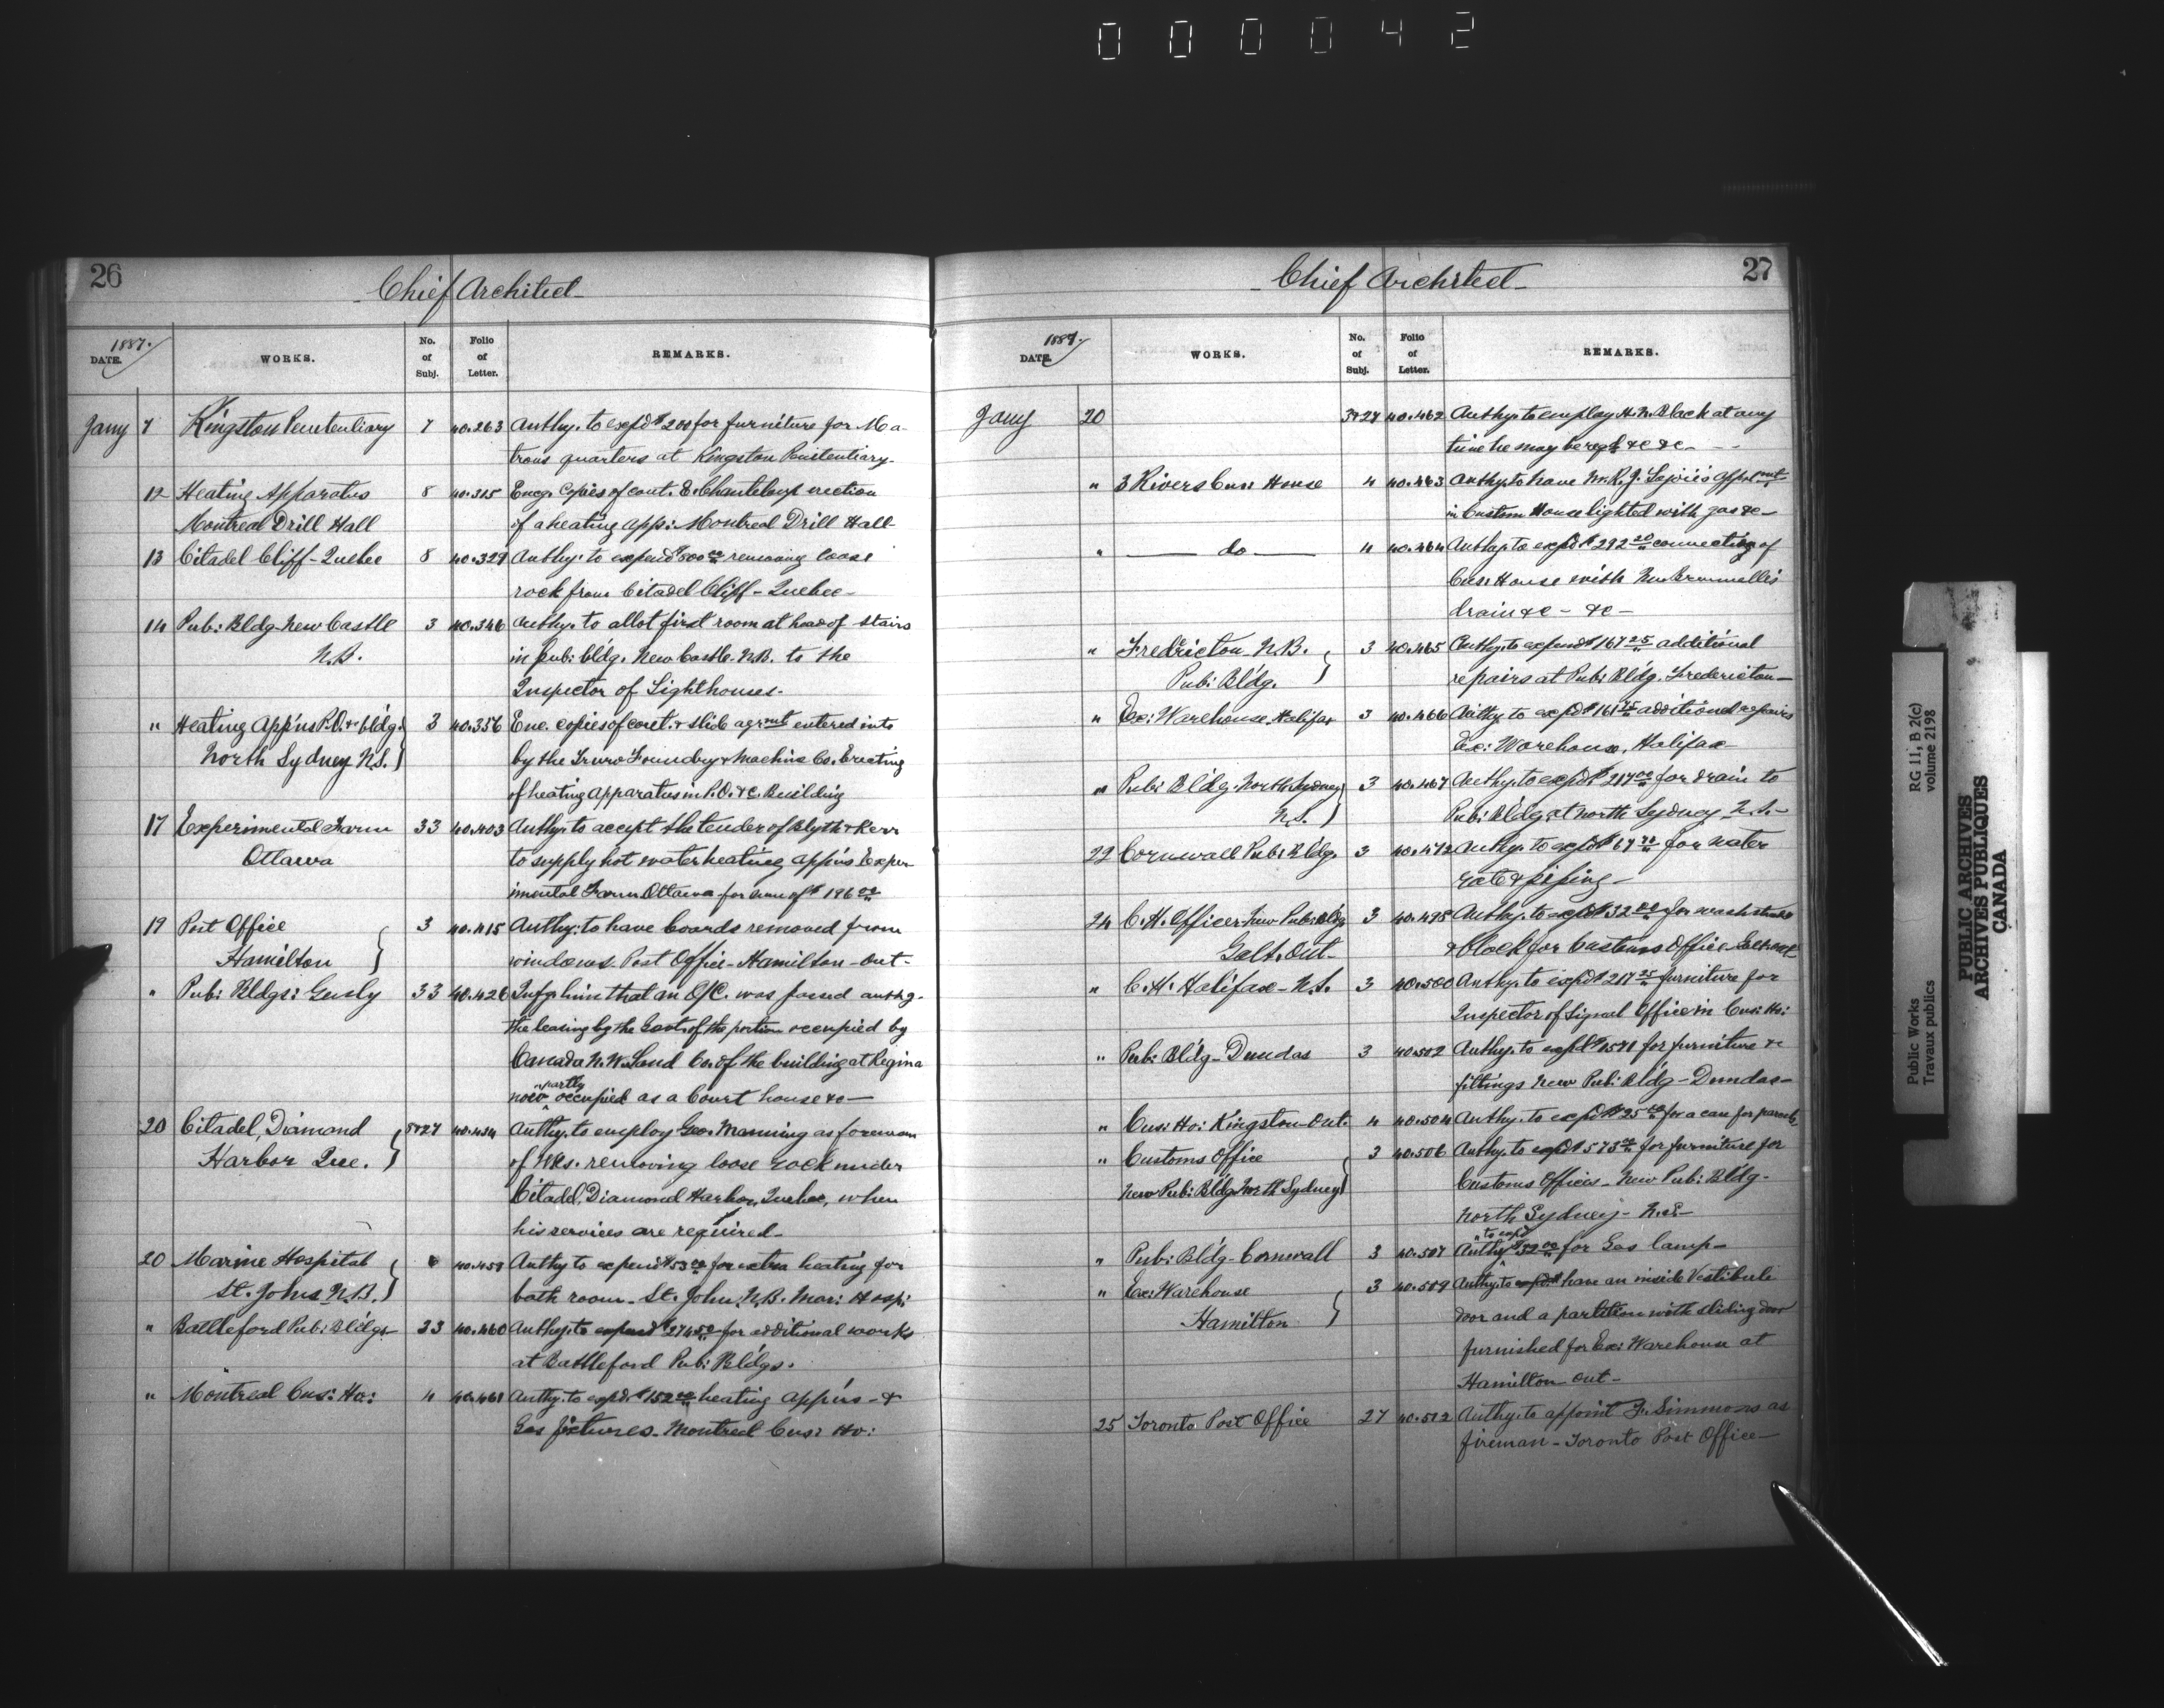 000042
26
Chief Architect
1887.
DATE.
WORKS.
No. of Subj.
Folio of Letter.
REMARKS.
Jany 7 Kingston Penetentiary 7 40.263 Authy. to expd $200 for furniture for Ma-
trons quarters at Kingston Penitentiary.
12 Heating Apparatus 8 40.315 Encg. Copies of cont. E. Chanteloup erection
Montreal Drill Hall of a heating app: Montreal Drill Hall
13 Citadel Cliff - Quebec 8 40.329 Authy. to expend $800 00 removing loose
rock from Citadel Cliff - Quebec -
14 Pub: Bldg. New Castle 3 40.346 Authy. to allot first room at head of stairs
N.B. in pub: bldg. New Castle. N.B. to the
Inspector of Lighthouses.
" Heating App'us P.O. &c bldg. 3 40.356 Enc. copies of cont. & slide agrmt entered into
North Sydney N.S. } by the Truro Foundry & Machine Co. Erecting
of heating apparatus in P.O. &c. Building
17 Experimental Farm 33 40.403 Authy. to accept the tender of Blyth & Kerr
Ottawa to supply hot water heating app'us Exper
imental Farm Ottawa for sum of $196 00
19 Post Office 3 40.415 Authy: to have boards removed from
Hamilton } windows. Post Office - Hamilton - Ont -
" Pub: Bldgs: Genly 33 40.426 Infg. him that an O/C. was passed authg.
the leasing by the Govt. of the portion occupied by
Canada N.W. Land Co. of the building at Regina
now partly occupied as a Court house &c -
20 Citadel, Diamond 8&27 40.434 Authy. to employ Geo. Manning as foreman
Harbor Que. } of Wks. removing loose rock under
Citadel, Diamond Harbor, Quebec, when
his services are required -
20 Marine Hospital 6 40.459 Authy to expend $53 00 for extra heating for
St. Johns N.B. } bath room - St. John, N.B. Mar: Hosp:
" Battleford Pub: Bldgs 33 40.460 Authy. to expend $274 50 for additional works
at Battleford Pub: Bldgs.
" Montreal Cus: Ho: 4 40.461 Authy. to expd. $152 00 heating app'us - &
Gas fixtures - Montreal Cus: Ho:
27
Chief Architect
1887.
DATE.
WORKS.
No. of Subj.
Folio of Letter.
REMARKS.
Jany 20 3&27 40.462 Authy. to employ H.N. Black at any
time he may be reqd. &c &c -
" 3 Rivers Cus: House 4 40.463 Authy. to have Mr. R.J. Lajoie's
in Custom House lighted with gas &c -
" do 4 40.464 Authy. to expd $292 20 connecting of
Cus: House with
drain &c - &c -
" Fredricton N.B. 3 40.465 Authy. to expend $167 25 additional
Pub: Bldg. } repairs at Pub: Bldg. Fredericton -
" Ex: Warehouse, Halifax 3 40.466 Authy. to expd $161 75 additional repairs
Ex: Warehouse, Halifax -
" Pub: Bldg. North Sydney 3 40.467 Authy. to expd $217 00 for drain to
N.S. } Pub: Bldg at North Sydney N.S. -
22 Cornwall Pub: Bldg. 3 40.472 Authy. to expd $67 for water
rate & piping -
24 C.H. Offices New Pub: Bldg 3 40.495 Authy. to expd $32 00 for washstand
Galt. Ont - & clock for Customs Office
" C.H. Halifax - N.S. 3 40.500 Authy. to expd $217 25 furniture for
Inspector of Signal Office in Cus: Ho:
" Pub: Bldg - Dundas 3 40.502 Authy. to expd $1571 for furniture &
fittings New Pub: Bldg - Dundas -
" Cus: Ho: Kingston - Ont. 4 40.504 Authy. to expd $25 00 for a case for parcels
" Customs Office 3 40.506 Authy. to expd $573 00 for furniture for
New Pub: Bldg North Sydney } Customs Offices - New Pub: Bldg.
North Sydney - N.S -
" Pub: Bldg - Cornwall 3 40.507 Authy. to expd $32 00 for Gas lamp -
" Ex: Warehouse 3 40.509 Authy. to expd. have an inside Vestibule
Hamilton } door and a partition with sliding door
furnished for Ex: Warehouse at
Hamilton Ont -
25 Toronto Post Office 27 40.512 Authy. to appoint F. Simmons as
fireman - Toronto Post Office -
Public Works
Travaux publics
RG 11, B 2(c)
volume 2198
PUBLIC ARCHIVES
ARCHIVES PUBLIQUES
CANADA